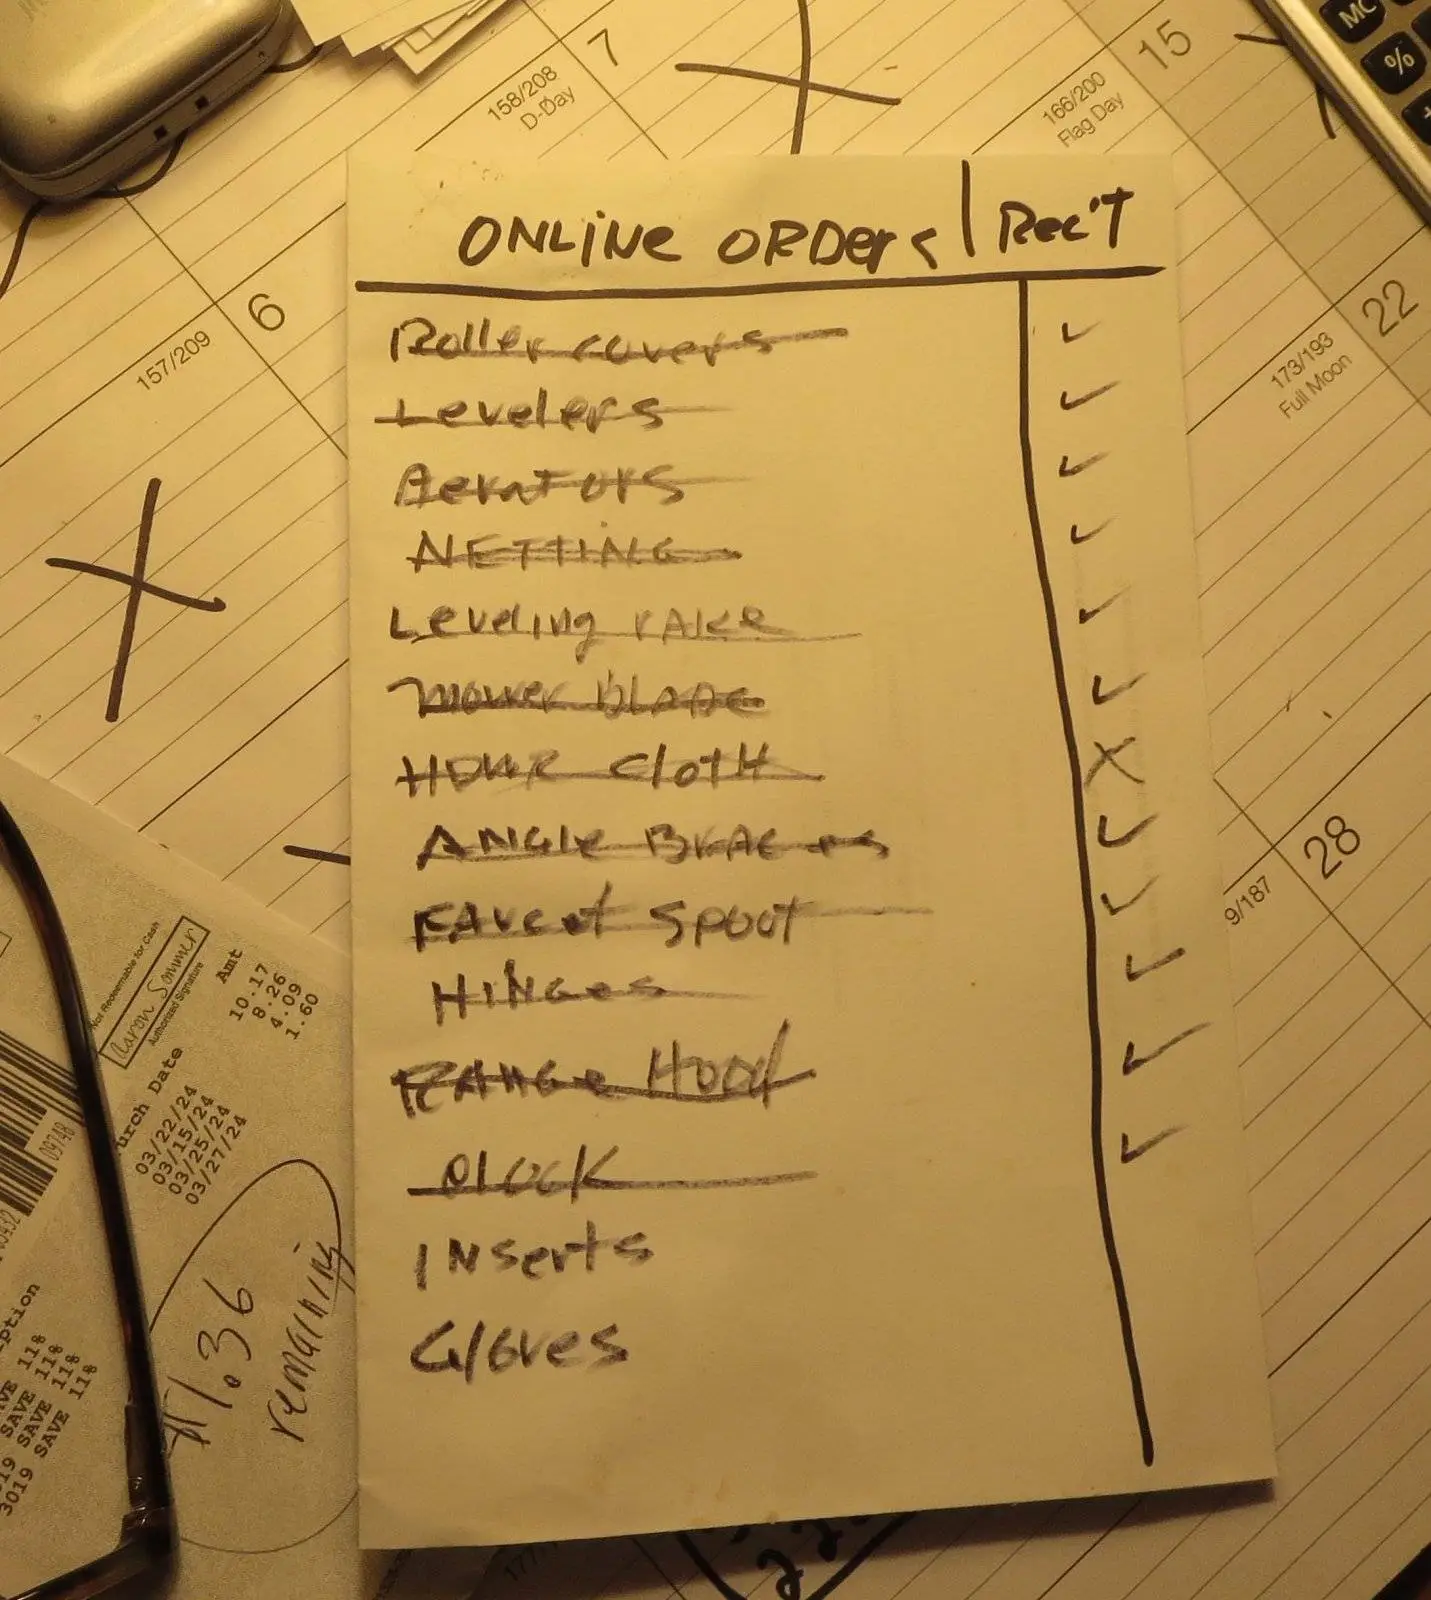 7
158/208
D-Day
15
166/200
Flag Day
MC
%
6
157/209
22
173/193
Full Moon
28
9/187
ONLINE ORDERS | Rec'T
Roller covers ✓
Levelers ✓
Aerators ✓
NETTING ✓
Leveling rAKe ✓
mower BLADe ✓
HDWR CLoTH X
ANGle BrAC es ✓
FAucet SPOUT ✓
HINGes ✓
RANGe HOOd ✓
clocK ✓
INserts
Gloves
Not Redeemable for Cash
Aaron Sommer
Authorized Signature
Amt
10.17
8.26
4.09
1.60
urch Date
03/22/24
03/15/24
03/25/24
03/27/24
09748
ption
VE 11%
SAVE 11%
19 SAVE 11%
3019 SAVE 11%
$1.36
remaining
177/